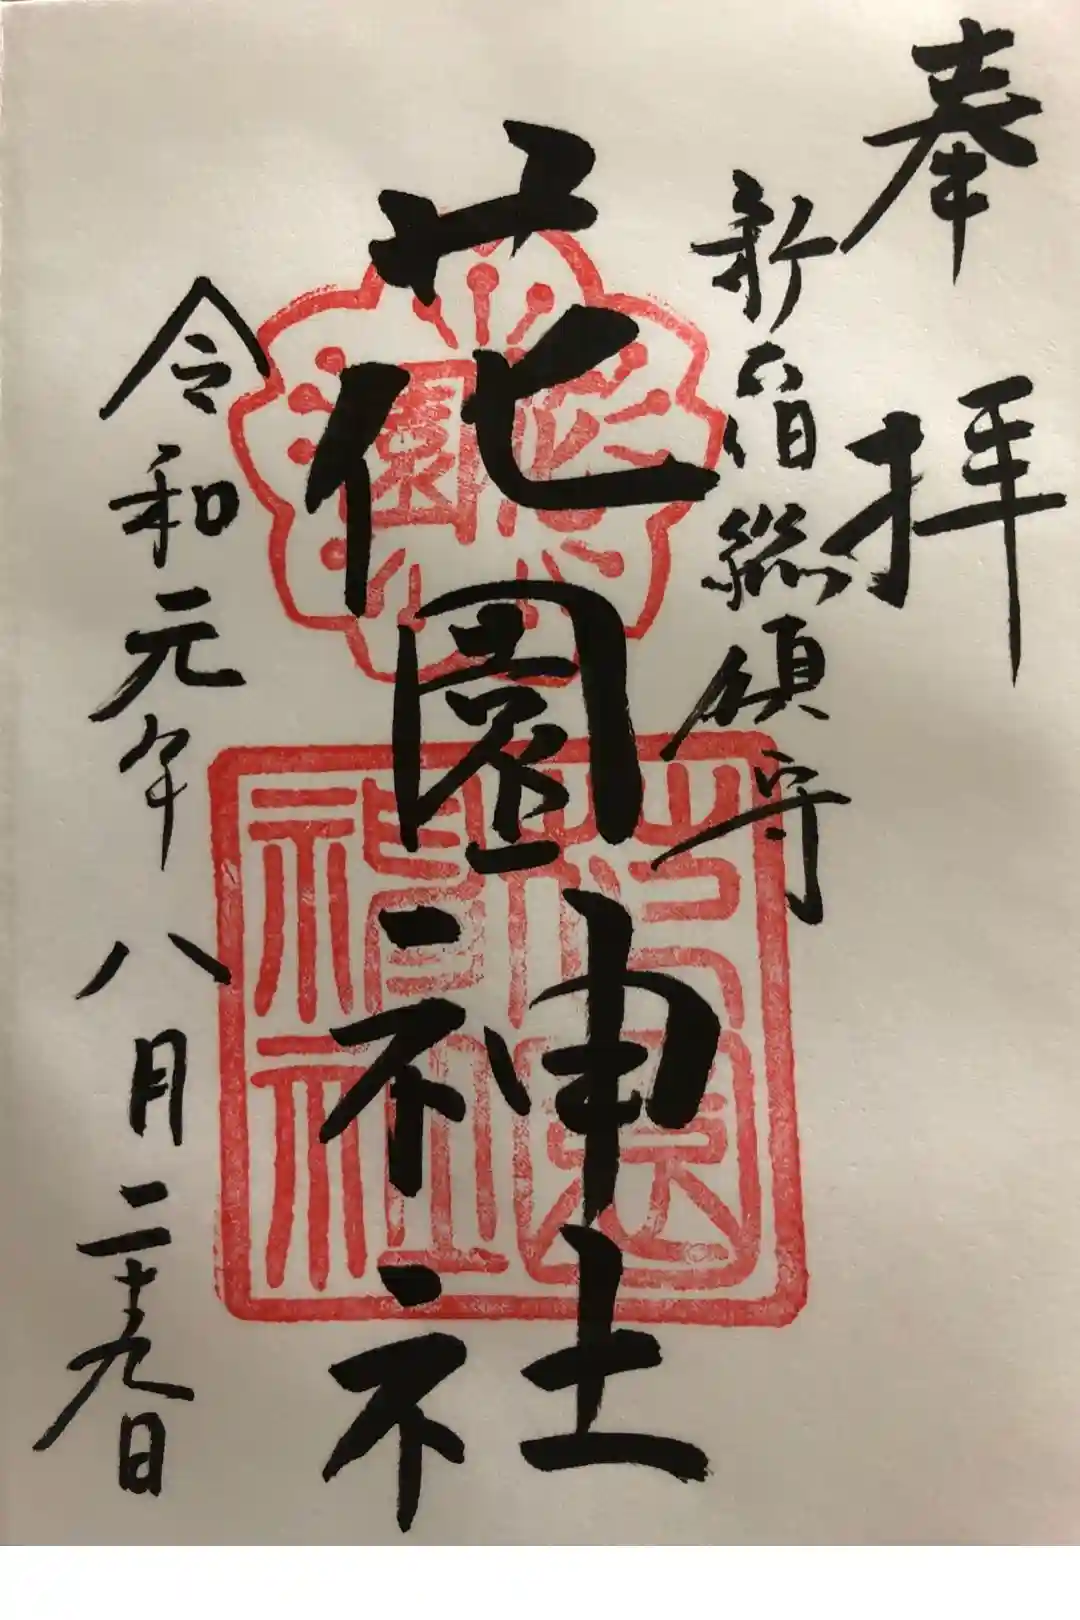 奉拝
新宿総領守
花園神社
令和元年八月二十九日
花園神社